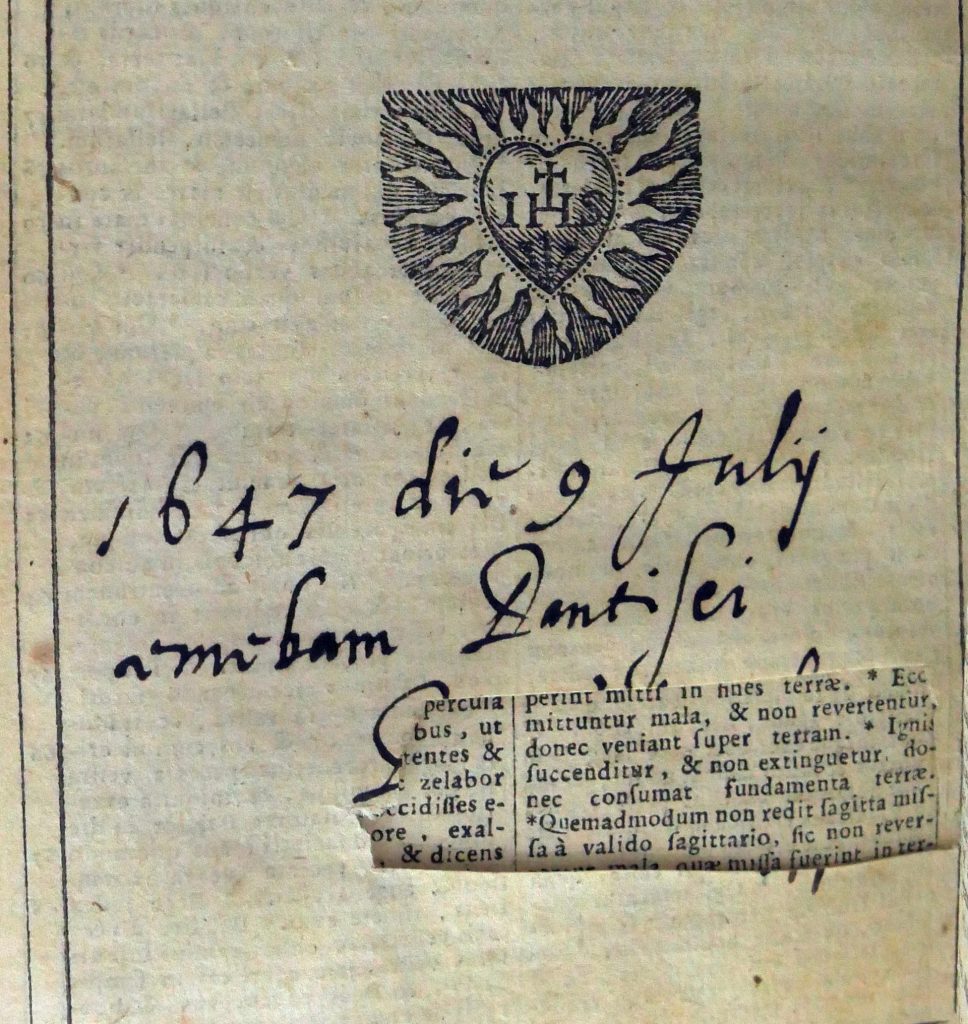 IHS
1647 die 9 Julij
emebam Dantiſci
percula
bus, ut
tentes &
zelabor
ccidiſſes e-
ore, exal-
, & dicens
perint mitti in fines terræ. * Ecc
mittuntur mala, & non revertentur,
donec veniant ſuper terram. * Ignis
ſuccenditur, & non extinguetur, do-
nec conſumat fundamenta terræ.
*Quemadmodum non redit ſagitta miſ-
ſa à valido ſagittario, ſic non rever-
mala, quæ miſſa fuerint in ter-